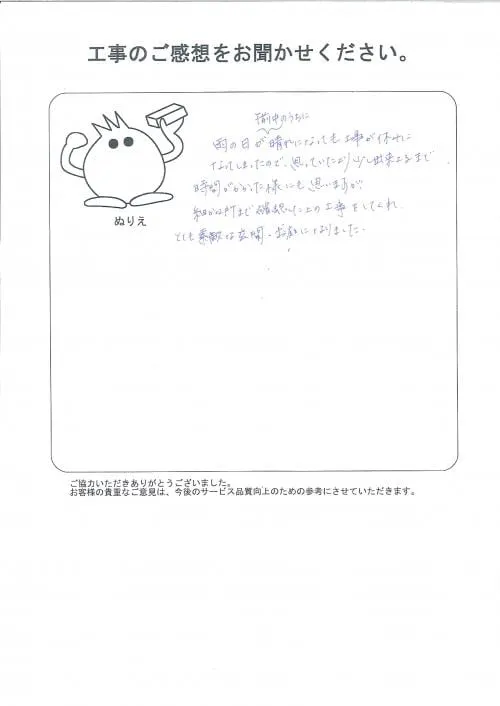 工事のご感想をお聞かせください。
午前中のうちに
雨の日が晴れになっても工事が休みに
なってしまったので、思っていたより少し出来上るまで
時間がかかった様にも思いますが
細かい所まで確認した上の工事をしてくれ
とても素敵な玄関・お庭になりました。
ぬりえ
ご協力いただきありがとうございました。
お客様の貴重なご意見は、今後のサービス品質向上のための参考にさせていただきます。